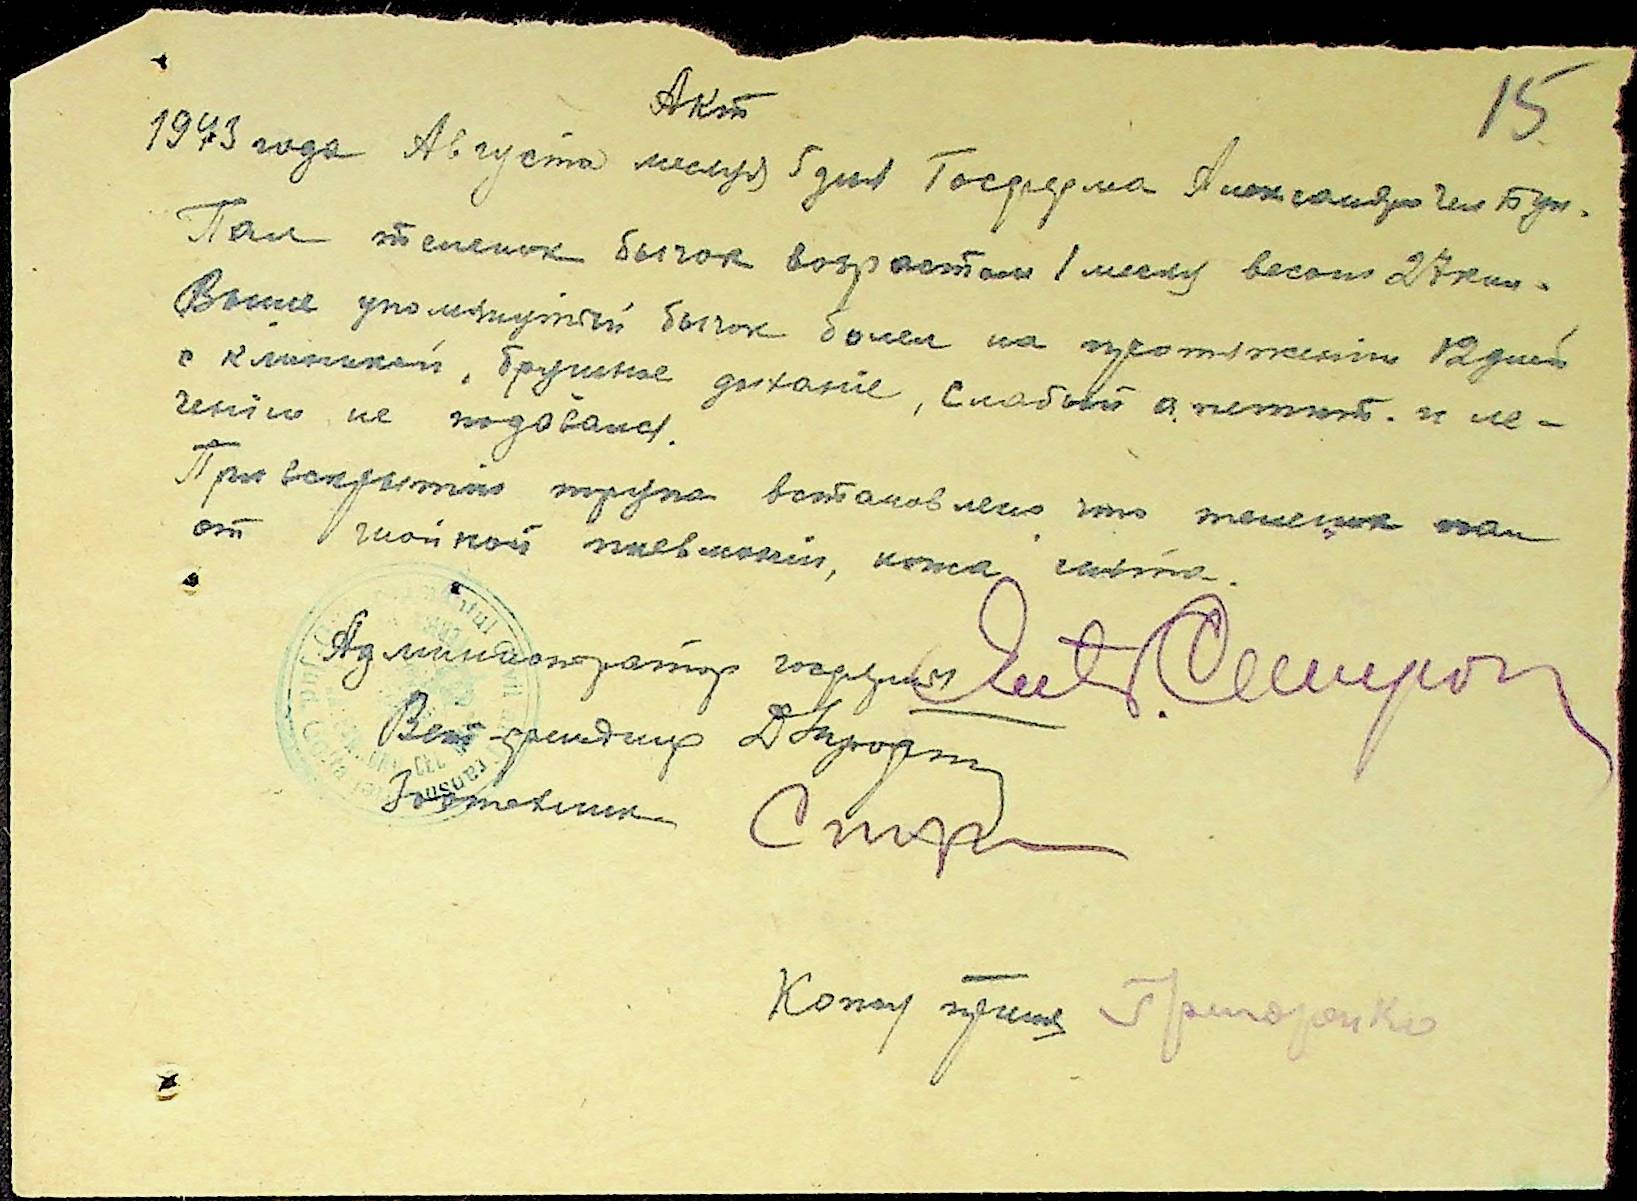 15
Акт
1943 года Августа месяца 5 дня Госферма
Пал теленок бычок возрастом 1 месяц весом 27 кил.
Выше упомянутый бычок болел на протяжении 12 дней
с клиникой, брушное дыхание, слабый апетит. и ле-
чению не подавался.
При вскрытии трупа встановлено что теленок пал
от гнойной пневмонии, кожа снята.
Администратор госфермы
Вет фельдшер
Зоотехник
Кожу принял Григоренко